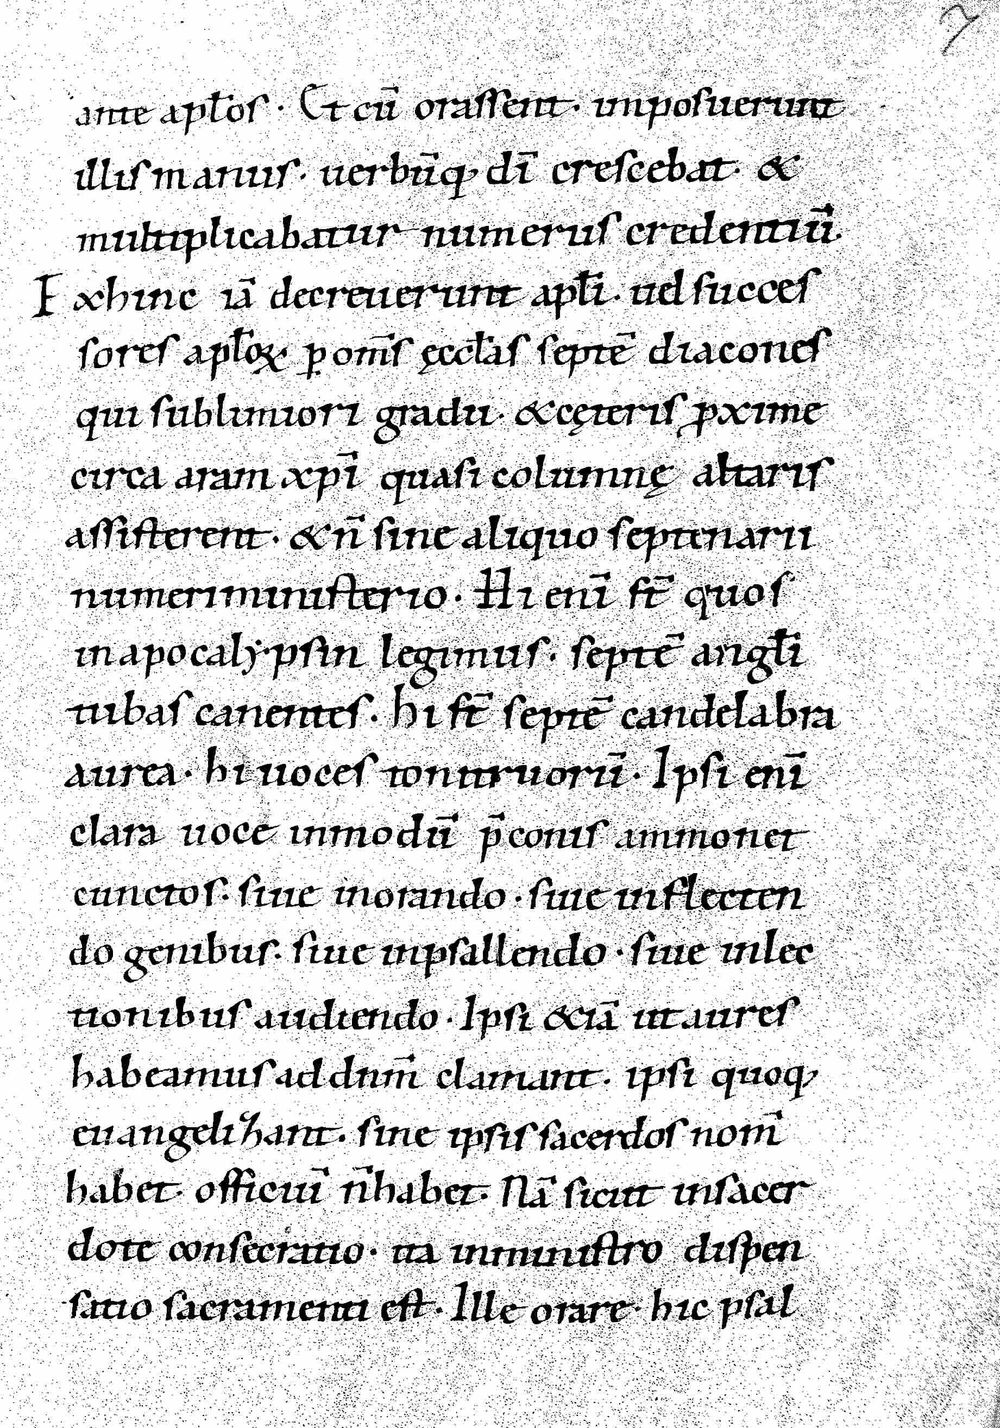 7
ante apl̄os · Et cū orassent · imposuerunt
illis manus · uerbūq; dī crescebat · &
multiplicabatur numerus credentiū.
Exhinc iā decreuerunt apl̄i · uel succes
sores apl̄oꝝ ꝑ om̄s ęccl̄as septē diacones
qui sublimiori gradu · & cęteris ꝓxime
circa aram xp̄i quasi columnę altaris
assisterent · & n̄ sine aliquo septenarii
numeri ministerio · Hi enī st̄ quos
in apocalẏpsin legimus · septē angl̄i
tubas canentes · hi st̄ septē candelabra
aurea · hi uoces tonitruorū · Ipsi enī
clara uoce in modū p̄conis ammonet
cunctos · siue in orando · siue in flecten
do genibus · siue in psallendo · siue in lec
tionibus audiendo · Ipsi &iā ut aures
habeamus ad dnm̄ clamant · ipsi quoq;
euangelizant · sine ipsis sacerdos nom̄
habet · officiū n̄ habet · Nā sicut in sacer
dote consecratio · ita in ministro dispen
satio sacramenti est · Ille orare · hic psal